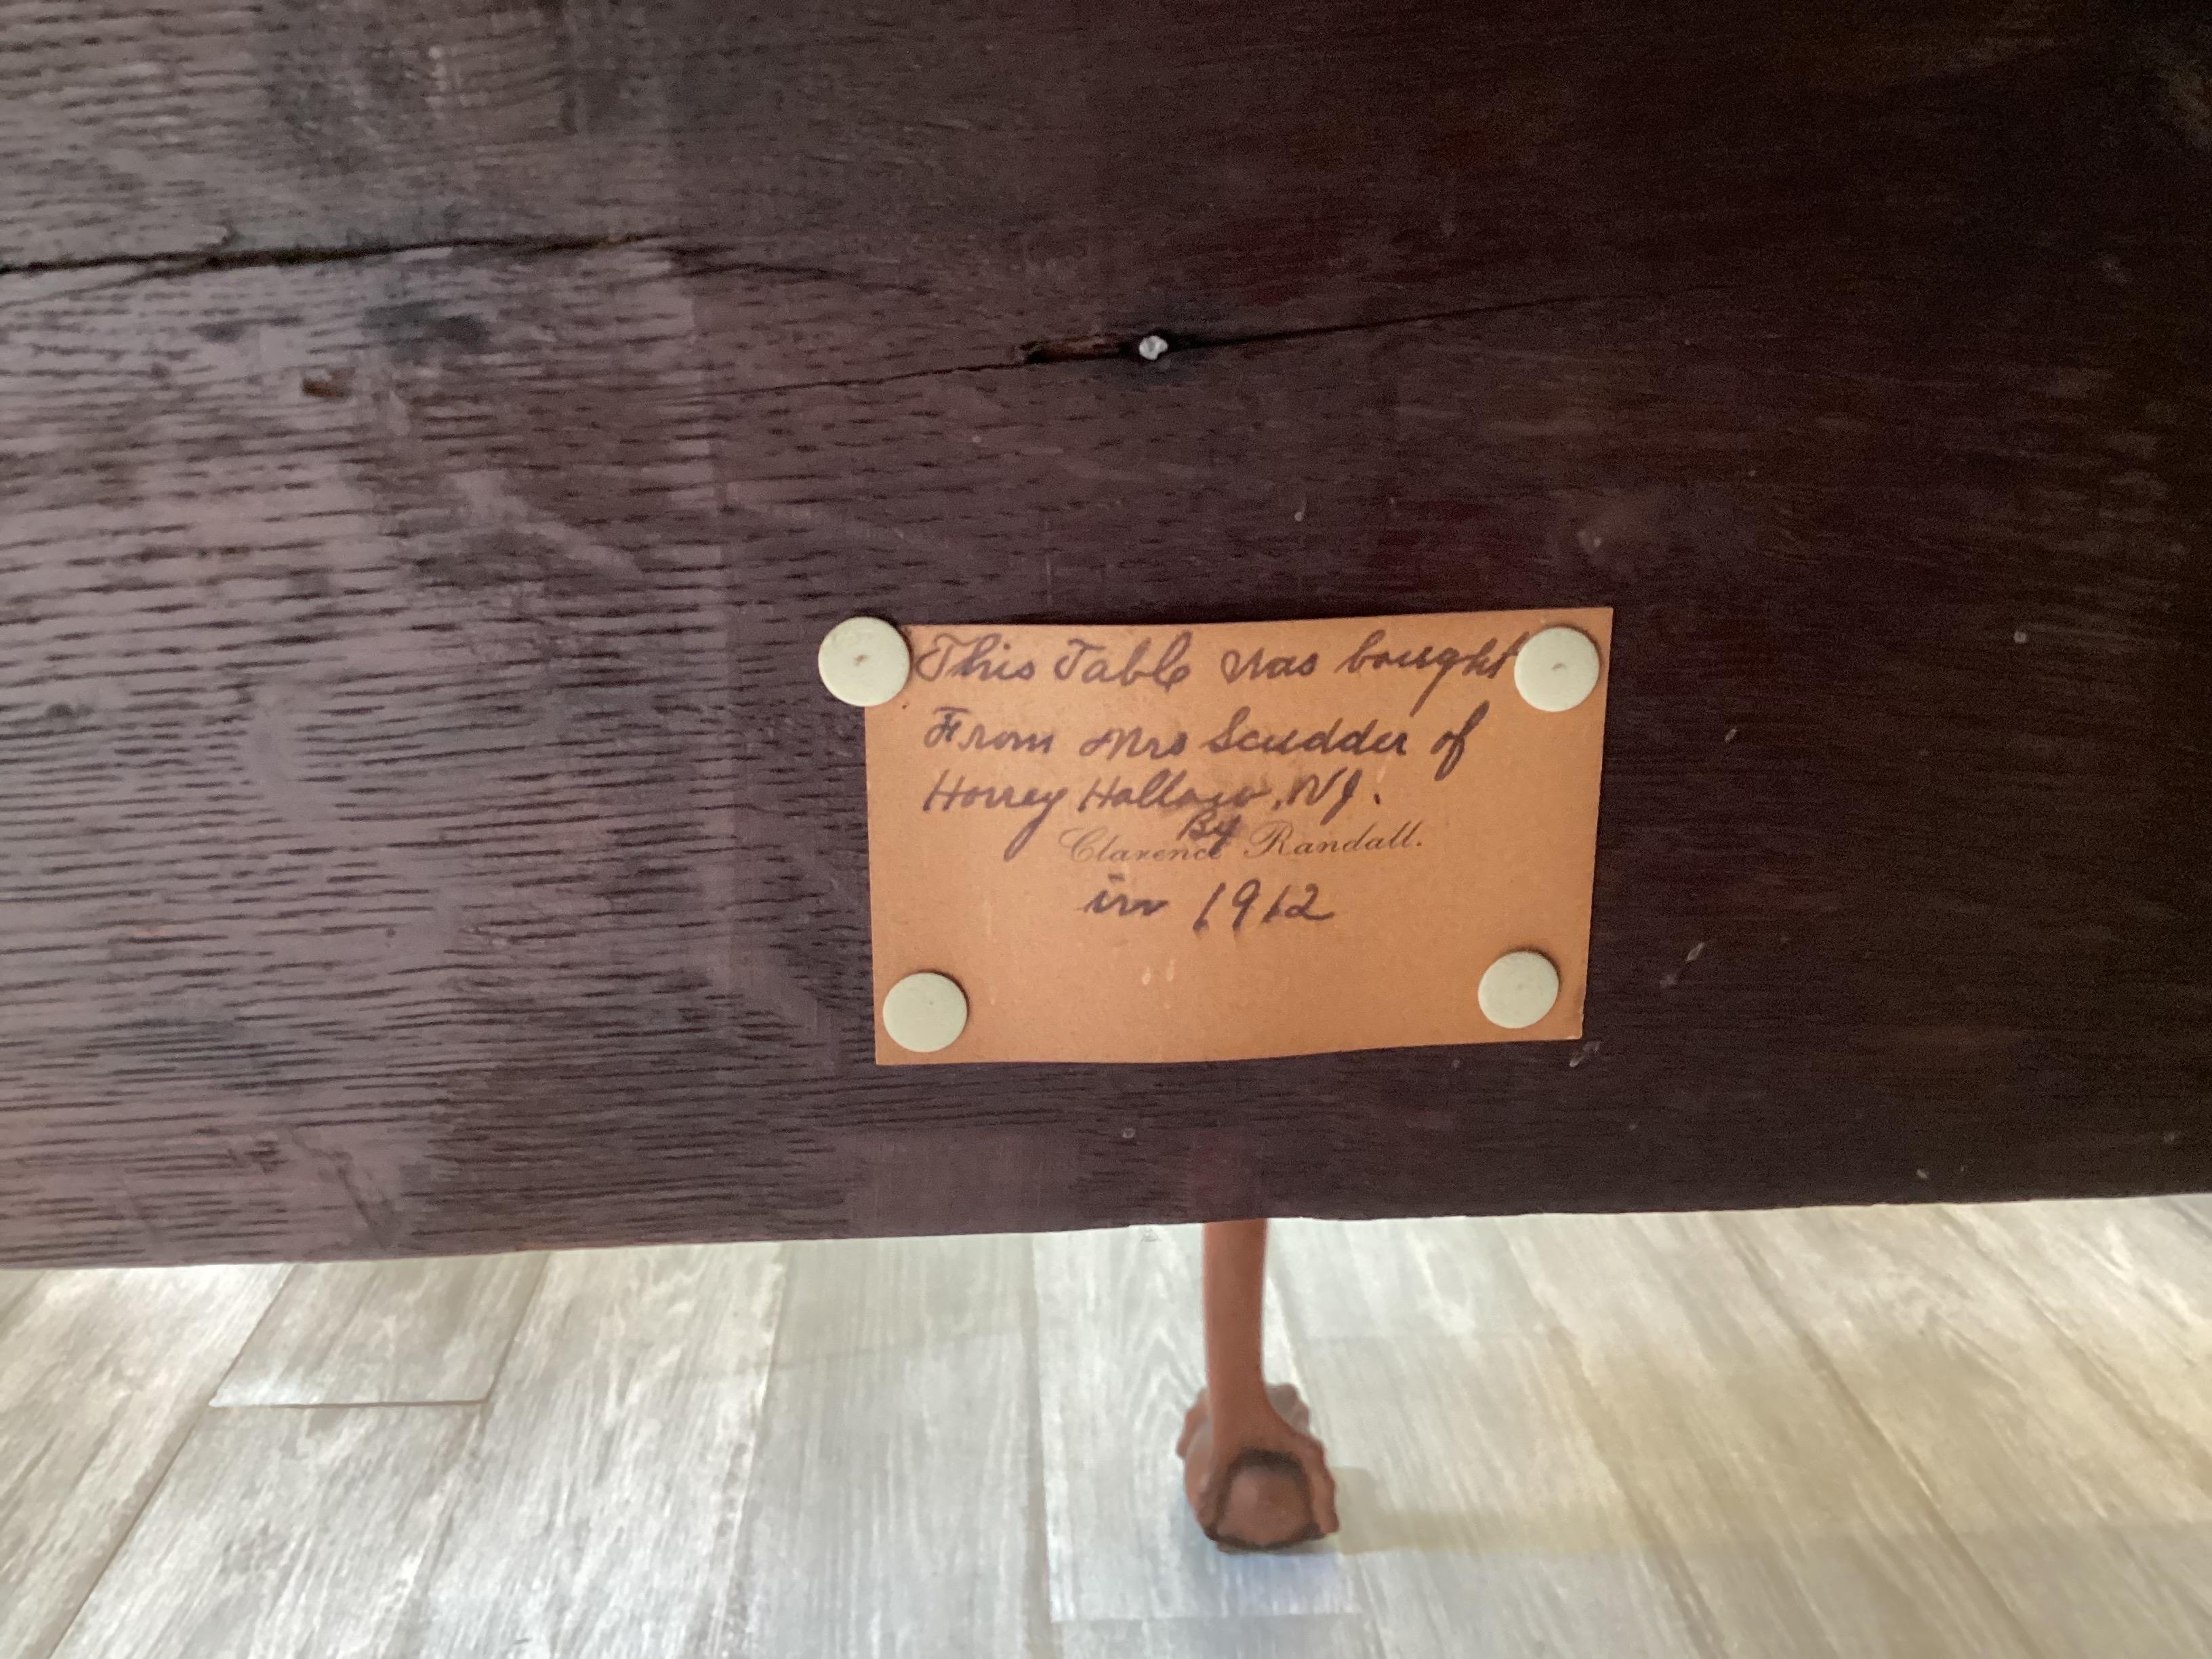 This Table was bought
From Mrs Scudder of
Horrey Hollow, NJ.
By
Clarence Randall.
in 1912